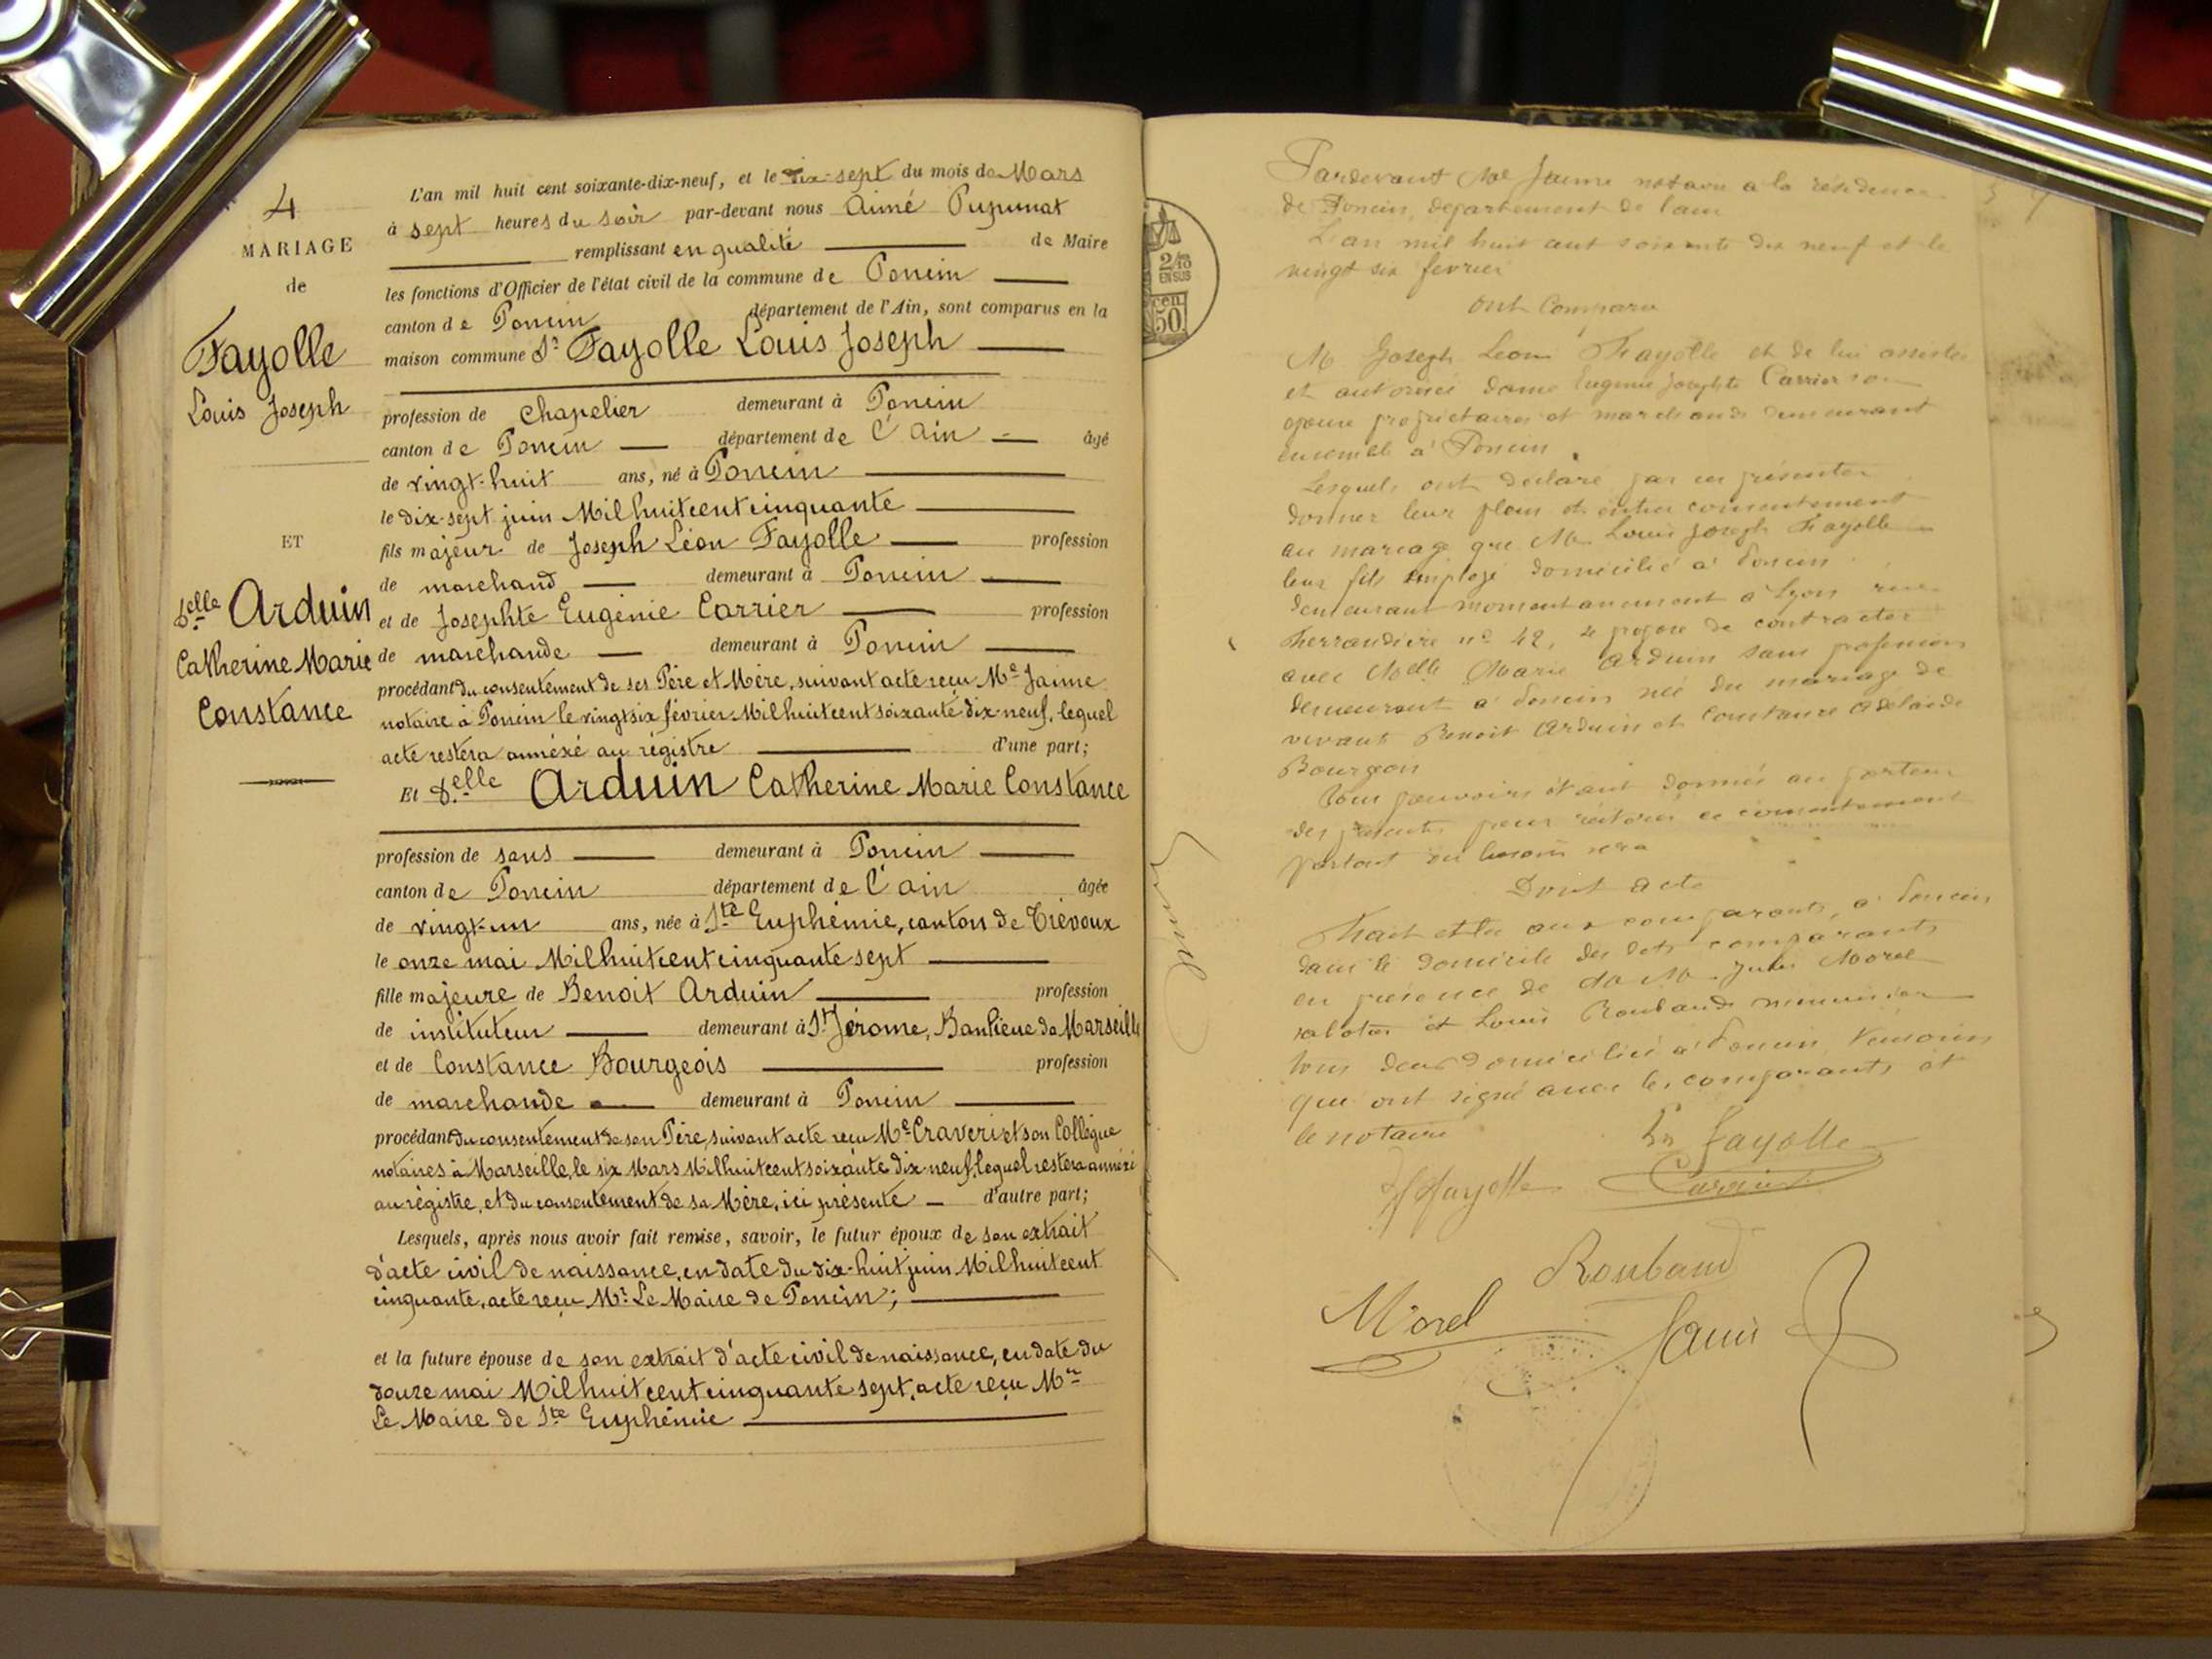 4
MARIAGE
de
Fayolle
Louis Joseph
ET
d.elle Arduin
Catherine Marie
Constance
L'an mil huit cent soixante-dix-neuf, et le dix-sept du mois de Mars
à sept heures du soir par-devant nous Aimé Pupunat
remplissant en qualité de Maire
les fonctions d'Officier de l'état civil de la commune de Poncin
canton de Poncin département de l'Ain, sont comparus en la
maison commune Sr Fayolle Louis Joseph
profession de Chapelier demeurant à Poncin
canton de Poncin département de l'Ain âgé
de vingt-huit ans, né à Poncin
le dix-sept juin Mil huit cent cinquante
fils majeur de Joseph Léon Fayolle profession
de marchand demeurant à Poncin
et de Josephte Eugénie Carrier profession
de marchande demeurant à Poncin
procédant du consentement de ses Père et Mère, suivant acte reçu Me Jaime
notaire à Poncin le vingt six février Mil huit cent soixante dix-neuf, lequel
acte restera annéxé au régistre d'une part;
Et d.elle Arduin Catherine Marie Constance
profession de sans demeurant à Poncin
canton de Poncin département de l'Ain âgée
de vingt-un ans, née à Ste Euphémie, canton de Trévoux
le onze mai Mil huit cent cinquante sept
fille majeure de Benoit Arduin profession
de instituteur demeurant à St Jérome, Banlieue de Marseille
et de Constance Bourgeois profession
de marchande demeurant à Poncin
procédant du consentement de son Père, suivant acte reçu Me Craveri et son Collègue
notaires à Marseille, le six Mars Mil huit cent soixante dix-neuf, lequel restera annéxé
au régistre, et du consentement de sa Mère, ici présente d'autre part;
Lesquels, après nous avoir fait remise, savoir, le futur époux de son extrait
d'acte civil de naissance, en date du dix-huit juin Mil huit cent
cinquante, acte reçu Mr Le Maire de Poncin;
et la future épouse de son extrait d'acte civil de naissance, en date du
douze mai Mil huit cent cinquante sept, acte reçu Mr
Le Maire de Ste Euphémie
2/10
EN SUS
cen
50
Pardevant Me Jaime notaire a la résidence
de Poncin, département de l'ain
L'an mil huit cent soixante dix neuf et le
vingt six fevrier
ont Comparu
M Joseph Leon Fayolle et de lui assistée
et autorisée dame Eugenie Josephte Carrier son
epouse proprietaires et marchands demeurant
ensemble a Poncin
Lesquels ont déclaré par ces présentes
donner leur plein et entier consentement
au mariage que Mr Louis Joseph Fayolle
leur fils employé domicilié a Poncin
demeurant momentanement a Lyon rue
Ferrandière no 42, se propose de contracter
avec Melle Marie Arduin sans profession
demeurant a Poncin née du mariage de
vivants Benoit Arduin et Constance Adélaide
Bourgeon
Tous pouvoirs étant donnés au porteur
des présentes pour réitérer ce consentement
partout ou besoin sera
Dont acte
Fait et lu aux comparants, a Poncin
dans le domicile des dits comparants
en présence de MM. Jules Morel
sabotier et Louis Roubaud menuisier
tous deux domiciliés a Poncin, témoins
qui ont signé avec les comparants et
le notaire
Fayolle
Carrier
Fayolle
Roubaud
Morel
Jaime